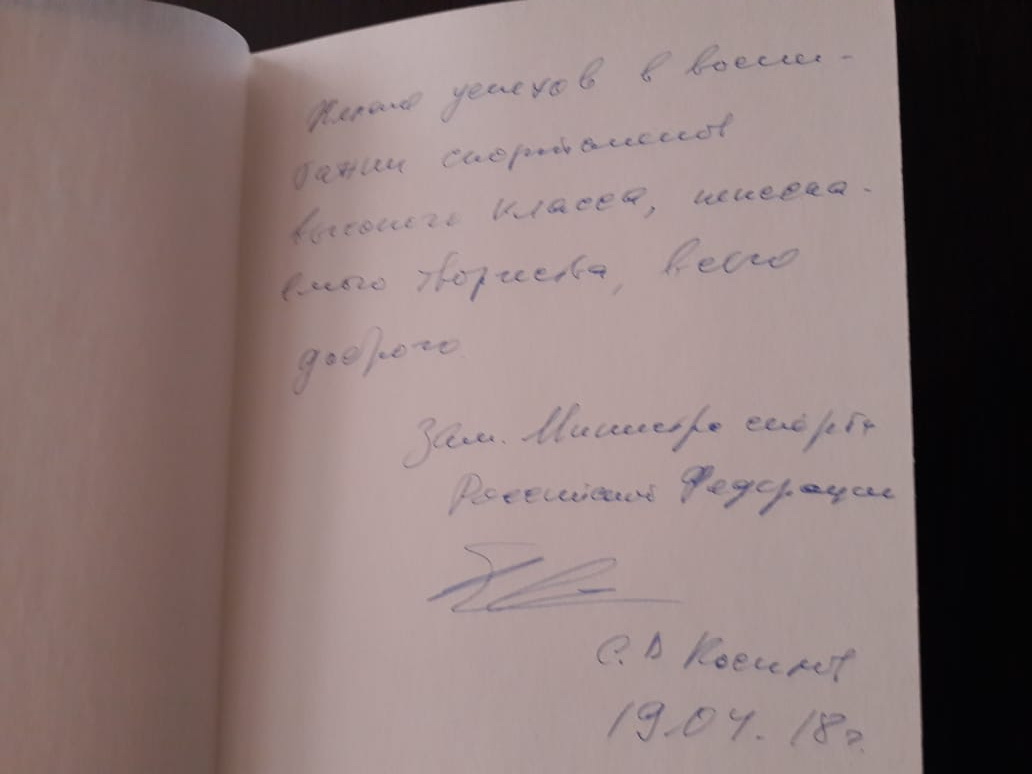 Желаю успехов в воспи-
тании спортсменов
высокого класса, неиссяка-
емого творчества, всего
доброго
Зам. Министра спорта
Российской Федерации
С.В Косилов
19.04.18г.